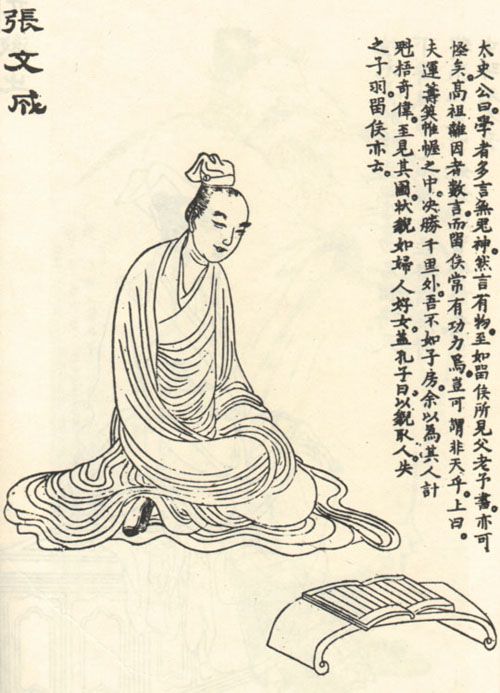 張文成
太史公曰。學者多言無鬼神。然言有物。至如留侯所見父老予書。亦可
怪矣。高祖離因者數言。而留侯常有功力焉。豈可謂非天乎。上曰。
夫運籌筴帷幄之中。決勝千里外。吾不如子房。余以為其人計
魁悟奇偉。至見其圖。狀貌如婦人好女。蓋孔子曰。以貌取人。失
之子羽。留侯亦云。